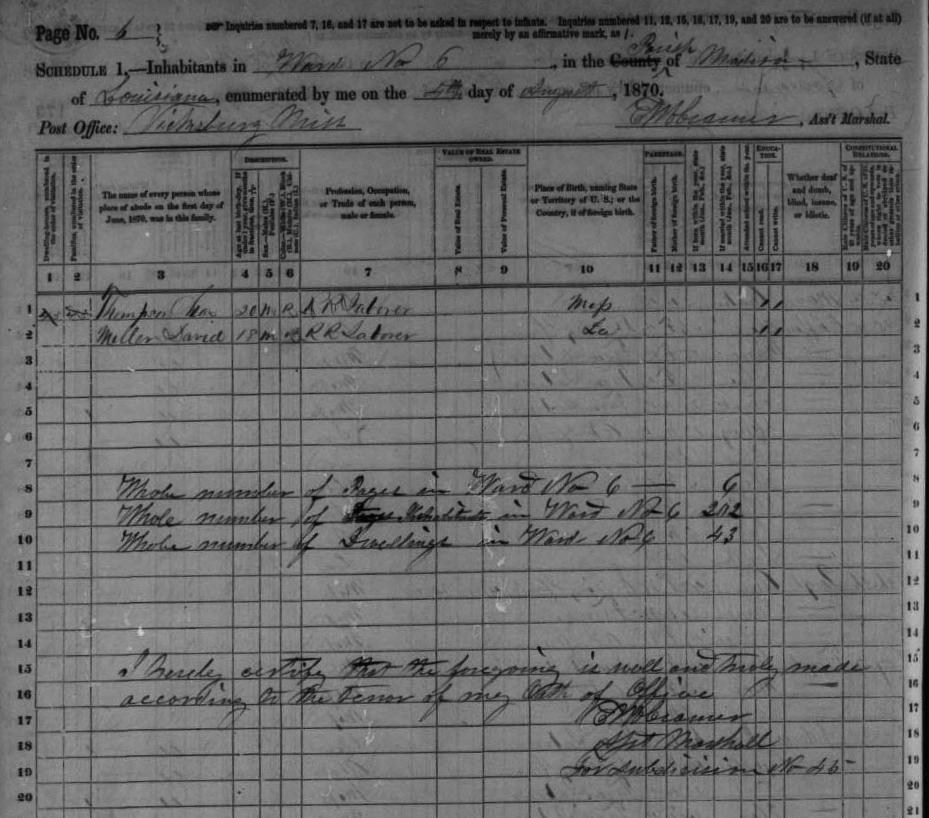 Page No. 6
Inquiries numbered 7, 16, and 17 are not to be asked in respect to infants. Inquiries numbered 11, 12, 15, 16, 17, 19, and 20 are to be answered (if at all)
merely by an affirmative mark, as /.
SCHEDULE 1,—Inhabitants in Ward No 6, in the County Parish of Madison, State
of Louisiana, enumerated by me on the day of August, 1870.
Post Office: Vicksburg Miss Cramer, Ass't Marshal.
DESCRIPTION. VALUE OF REAL ESTATE OWNED. PARENTAGE. EDUCATION. CONSTITUTIONAL RELATIONS.
Dwelling-houses, numbered in the order of visitation.
Families, numbered in the order of visitation.
The name of every person whose place of abode on the first day of June, 1870, was in this family.
Profession, Occupation, or Trade of each person, male or female.
Value of Real Estate.
Value of Personal Estate.
Place of Birth, naming State or Territory of U. S.; or the Country, if of foreign birth.
Father of foreign birth.
Mother of foreign birth.
Attended school within the year.
Cannot read.
Cannot write.
Whether deaf and dumb, blind, insane, or idiotic.
1 2 3 4 5 6 7 8 9 10 11 12 13 14 15 16 17 18 19 20
1 Thompson 20 M R R Laborer Miss 1
2 Miller David 18 M R R Laborer La 2
3 3
4 4
5 5
6 6
7 7
8 Whole number of Pages in Ward No 6 — 6 8
9 Whole number of Inhabitants in Ward No 6 202 9
10 Whole number of Dwellings in Ward No 6 43 10
11 11
12 12
13 13
14 14
15 I hereby certify that the foregoing is well and truly made 15
16 according to the tenor of my Oath of Office 16
17 Cramer 17
18 Asst Marshall 18
19 For Subdivision No 45 19
20 20
21